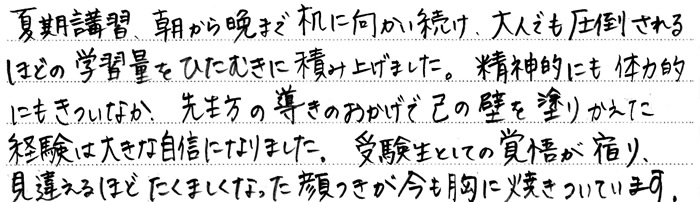 夏期講習、朝から晩まで机に向かい続け、大人でも圧倒される
ほどの学習量をひたむきに積み上げました。精神的にも体力的
にもきついなか、先生方の導きのおかげで己の壁を塗りかえた
経験は大きな自信になりました。受験生としての覚悟が宿り、
見違えるほどたくましくなった顔つきが今も胸に焼きついています。